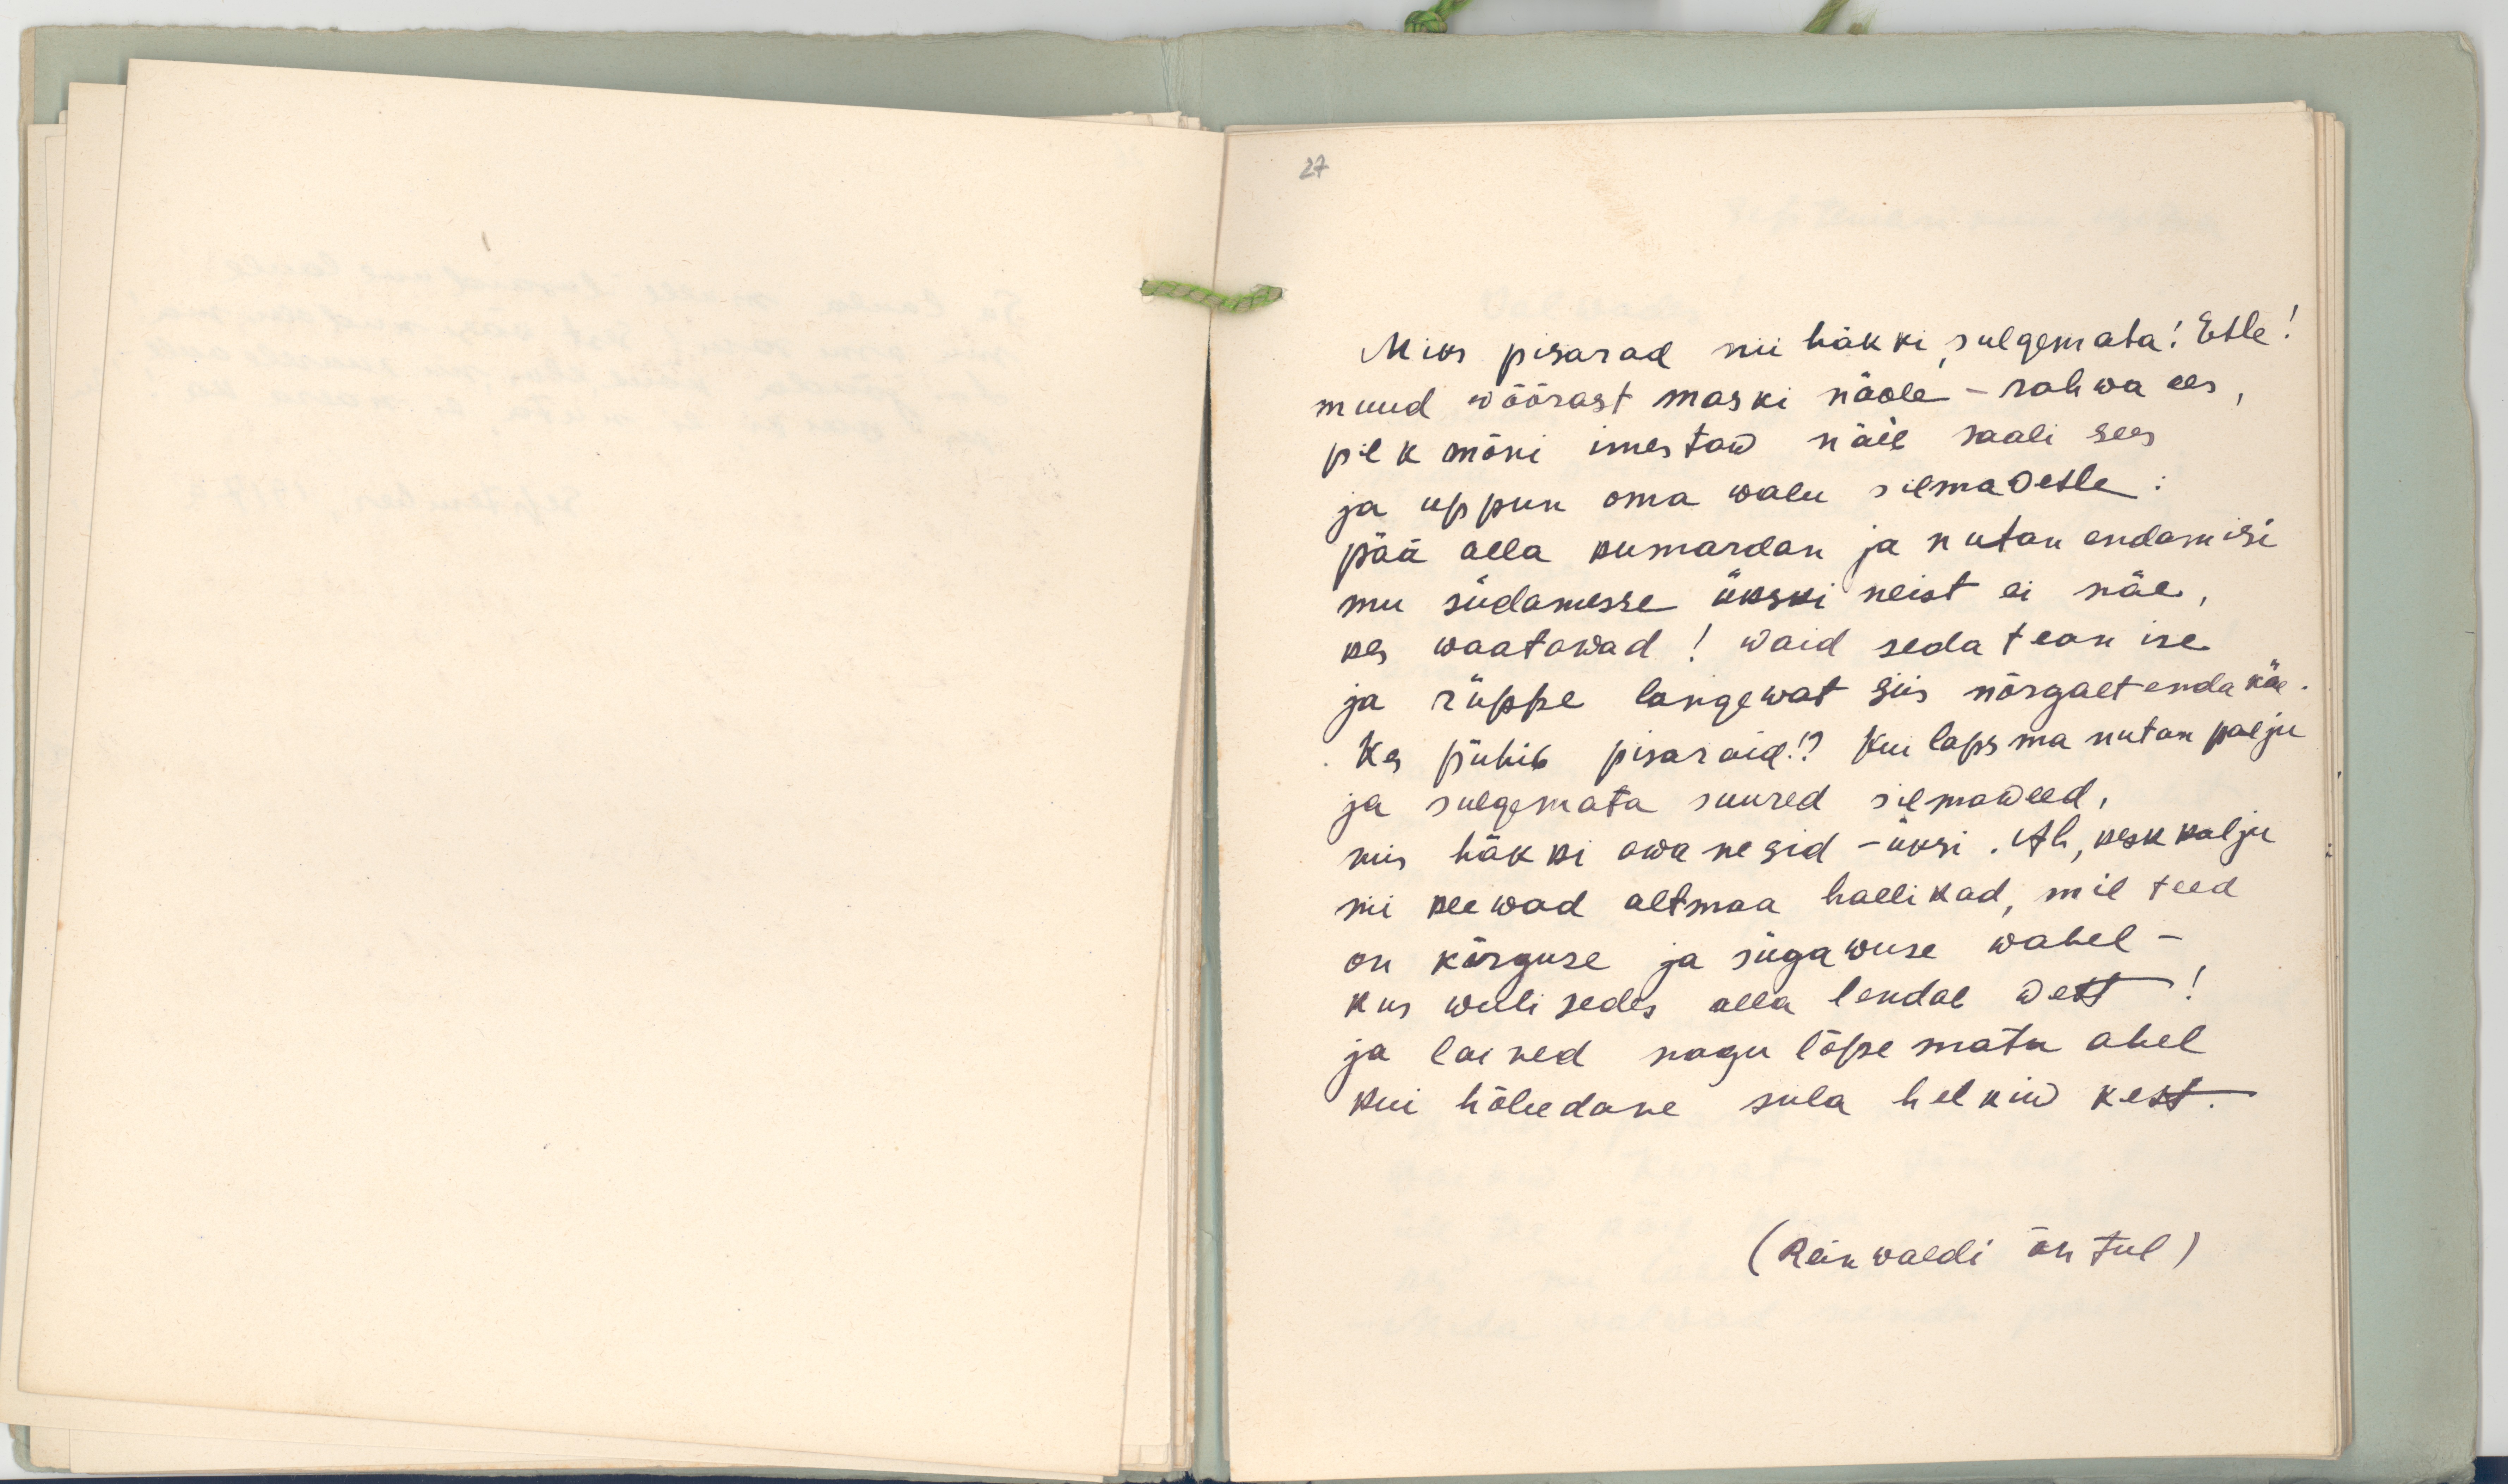 27
Miks pisarad nii häkki, sulgemata! Ette!
muud wõõrast maski näole – rahwa ees,
pilk mõni imestaw näib saali sees
ja uppun oma walu silmadette:
pää alla kumardan ja nutan endamisi
mu südamesse ükski neist ei näe,
kes waatawad! waid seda tean ise
ja rüppe langewat siis nõrgalt enda käe.
Kes pühib pisaraid!? Kui laps ma nutan palju
ja sulgemata suured silmaweed,
mis häkki awanesid – üksi. Ah, kesk kalju
nii keewad altmaa hallikad, mil teed
on kõrguse ja sügawuse wahel –
kus wulisedes alla lendab west!
ja lained nagu lõpematu ahel
kui hõbedane sula helkiw kest.
(Reinwaldi õhtul)